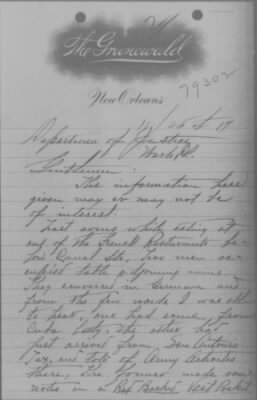 The Grunewald
New Orleans
79302
Department of Justice
Wash DC.
Gentlemen:
The information here
given may or may not be
of interest.
Last evening while eating at
one of the French Restaurants be-
low Canal Sts, two men oc-
cupied table adjoining mine.
They conversed in German and
from the few words I was able
to hear, one had come from
Cuba lately, the other had
just arrived from San Antonio
Tex, and told of Army Activities
there, the former made some
notes in a Red Backed Vest Pocket